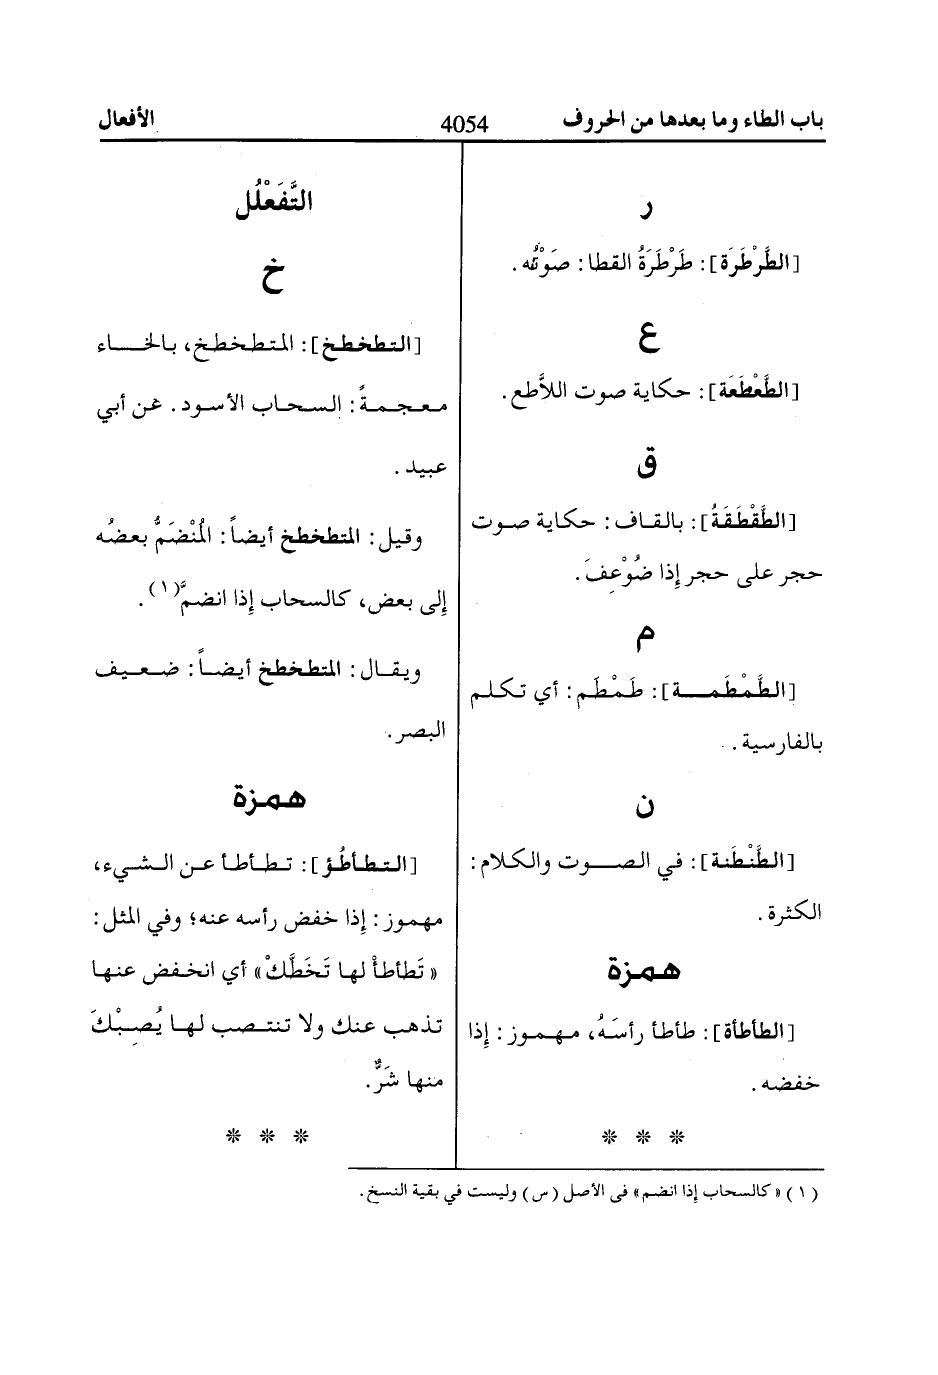 باب الطاء وما بعدها من الحروف
4054
الأفعال
ر
[الطَّرْطَرَة]: طَرْطَرَةُ القطا: صَوْتُه.
ع
[الطَّعْطَعَة]: حكاية صوت اللاَّطع.
ق
[الطَّقْطَقَةُ]: بالقاف: حكاية صوت
حجر على حجر إذا ضُوْعِفَ.
م
[الطَّمْطَمـة]: طَمْطَم: أي تكلم
بالفارسية.
ن
[الطَّنْطَنة]: في الصـوت والكلام:
الكثرة.
همزة
[الطأطأة]: طأطأ رأسَهُ، مهموز: إذا
خفضه.
* * *
التَّفَعْلُل
خ
[التطخطخ]: المتطخطخ، بالخـاء
معجمةً: السحاب الأسود. عن أبي
عبيد.
وقيل: المتطخطخ أيضاً: المُنْضَمُّ بعضُه
إلى بعض، كالسحاب إذا انضمَّ(١).
ويقال: المتطخطخ أيضاً: ضعيف
البصر.
همزة
[التطأطُؤ]: تطأطأ عن الشيء،
مهموز: إذا خفض رأسه عنه؛ وفي المثل:
«تَطأطأْ لها تَخَطَّكْ» أي انخفض عنها
تذهب عنك ولا تنتصب لها يُصِبْكَ
منها شَرٌّ.
* * *
(١) «كالسحاب إذا انضم» في الأصل (س) وليست في بقية النسخ.